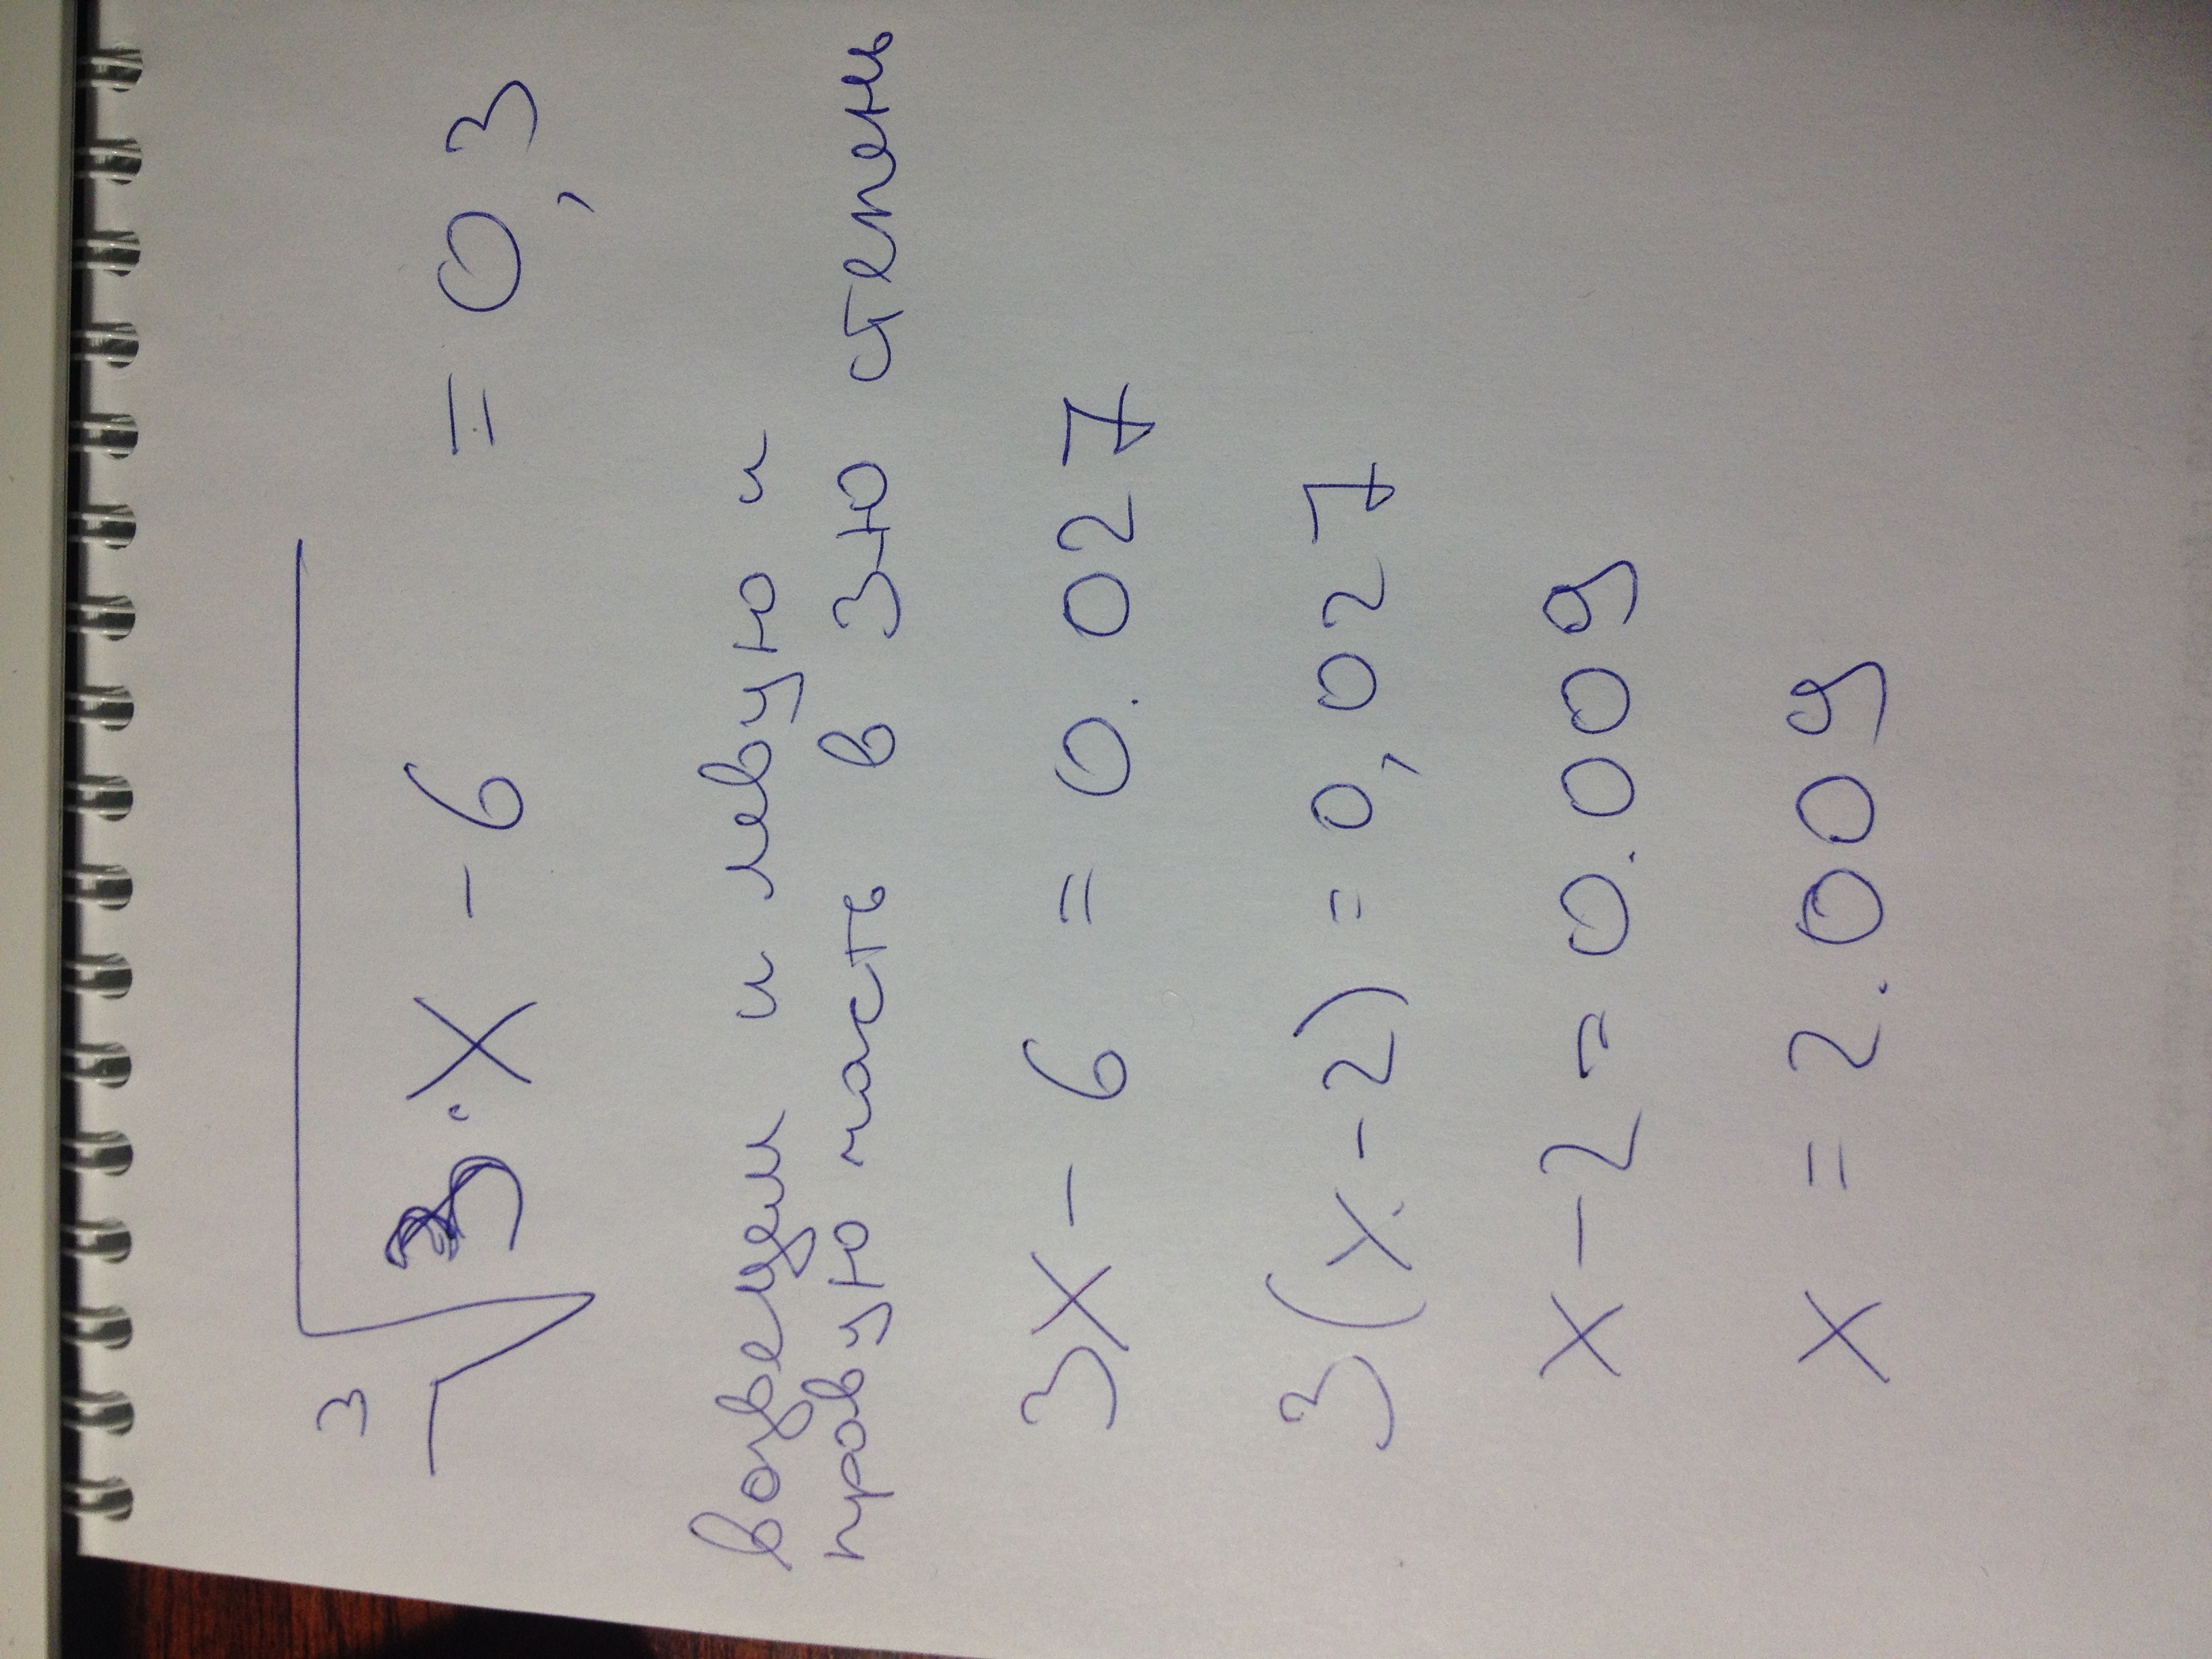 ∛(3·x - 6) = 0,3
возведем и левую и
правую часть в 3-ю степень
3x - 6 = 0.027
3(x - 2) = 0,027
x - 2 = 0.009
x = 2.009